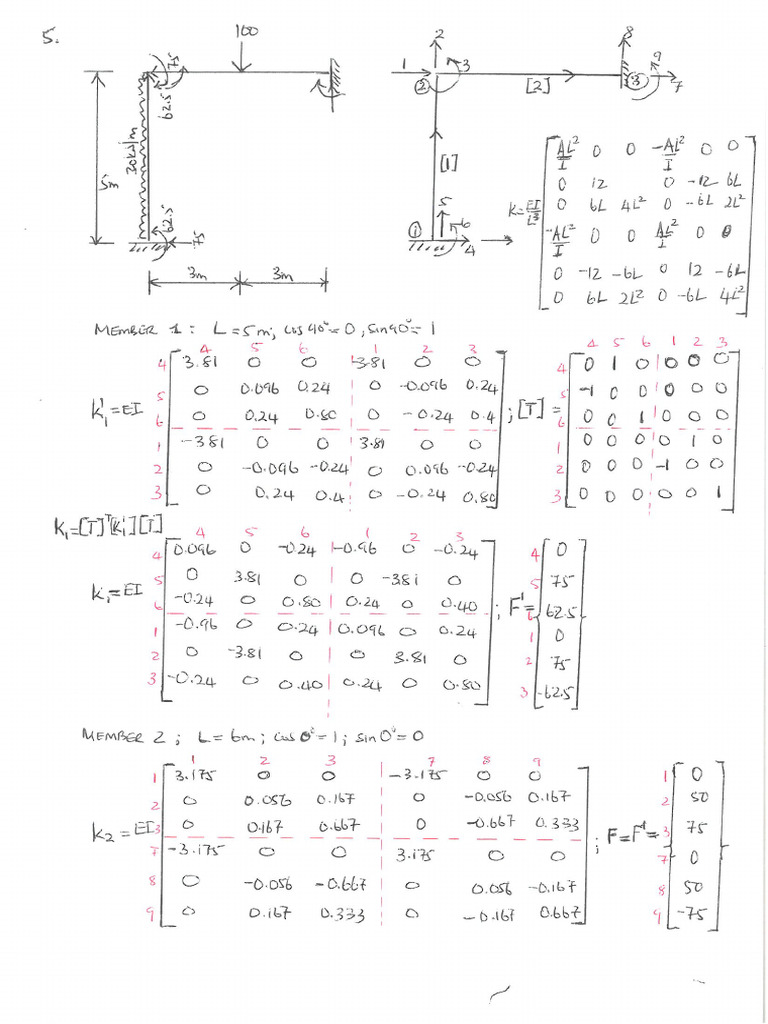 5.
100
75
62.5
30kN/m
5m
62.5
75
3m 3m
1 2 3 [2] 8 9 7
② ③
[1]
5 6
① 4
K=EI/L³
AL²/I 0 0 -AL²/I 0 0
0 12 0 -12 6L
0 6L 4L² 0 -6L 2L²
-AL²/I 0 0 AL²/I 0 0
0 -12 -6L 0 12 -6L
0 6L 2L² 0 -6L 4L²
MEMBER 1: L=5m; cos 90°=0, sin 90°=1
4 5 6 1 2 3
4 3.81 0 0 -3.81 0 0
5 0 0.096 0.24 0 -0.096 0.24
K₁'=EI 6 0 0.24 0.80 0 -0.24 0.4
1 -3.81 0 0 3.81 0 0
2 0 -0.096 -0.24 0 0.096 -0.24
3 0 0.24 0.4 0 -0.24 0.80
; [T] =
4 5 6 1 2 3
4 0 1 0 0 0 0
5 -1 0 0 0 0 0
6 0 0 1 0 0 0
1 0 0 0 0 1 0
2 0 0 0 -1 0 0
3 0 0 0 0 0 1
K₁=[T]ᵀ[K₁'][T]
4 5 6 1 2 3
4 0.096 0 -0.24 -0.96 0 -0.24
5 0 3.81 0 0 -3.81 0
K₁=EI 6 -0.24 0 0.80 0.24 0 0.40
1 -0.96 0 0.24 0.096 0 0.24
2 0 -3.81 0 0 3.81 0
3 -0.24 0 0.40 0.24 0 0.80
; F¹=
4 0
5 75
6 62.5
1 0
2 75
3 -62.5
MEMBER 2; L=6m; cos 0°=1; sin 0°=0
1 2 3 7 8 9
1 3.175 0 0 -3.175 0 0
2 0 0.056 0.167 0 -0.056 0.167
K₂=EI 3 0 0.167 0.667 0 -0.667 0.333
7 -3.175 0 0 3.175 0 0
8 0 -0.056 -0.667 0 0.056 -0.167
9 0 0.167 0.333 0 -0.167 0.667
; F=F¹=
1 0
2 50
3 75
7 0
8 50
9 -75